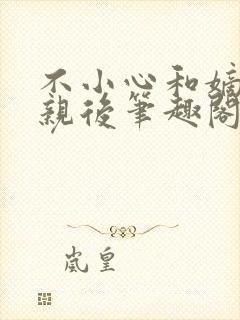 不小心和嫡
親後筆趣閣
嵐皇